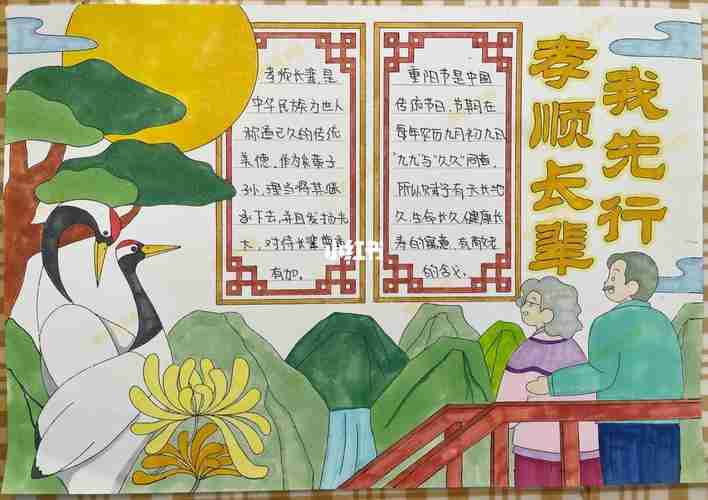 孝顺长辈
我先行
孝顺长辈是
中华民族为世人
称道已久的传统
美德,作为炎黄子
孙,理当将其继
承下去,并且发扬光
大,对待长辈尊敬
有加。
重阳节是中国
传统节日,节期在
每年农历九月初九日
"九九"与"久久"同音
所以赋予有天长地
久,生命长久,健康长
寿的寓意,有敬老
的含义。
小红书